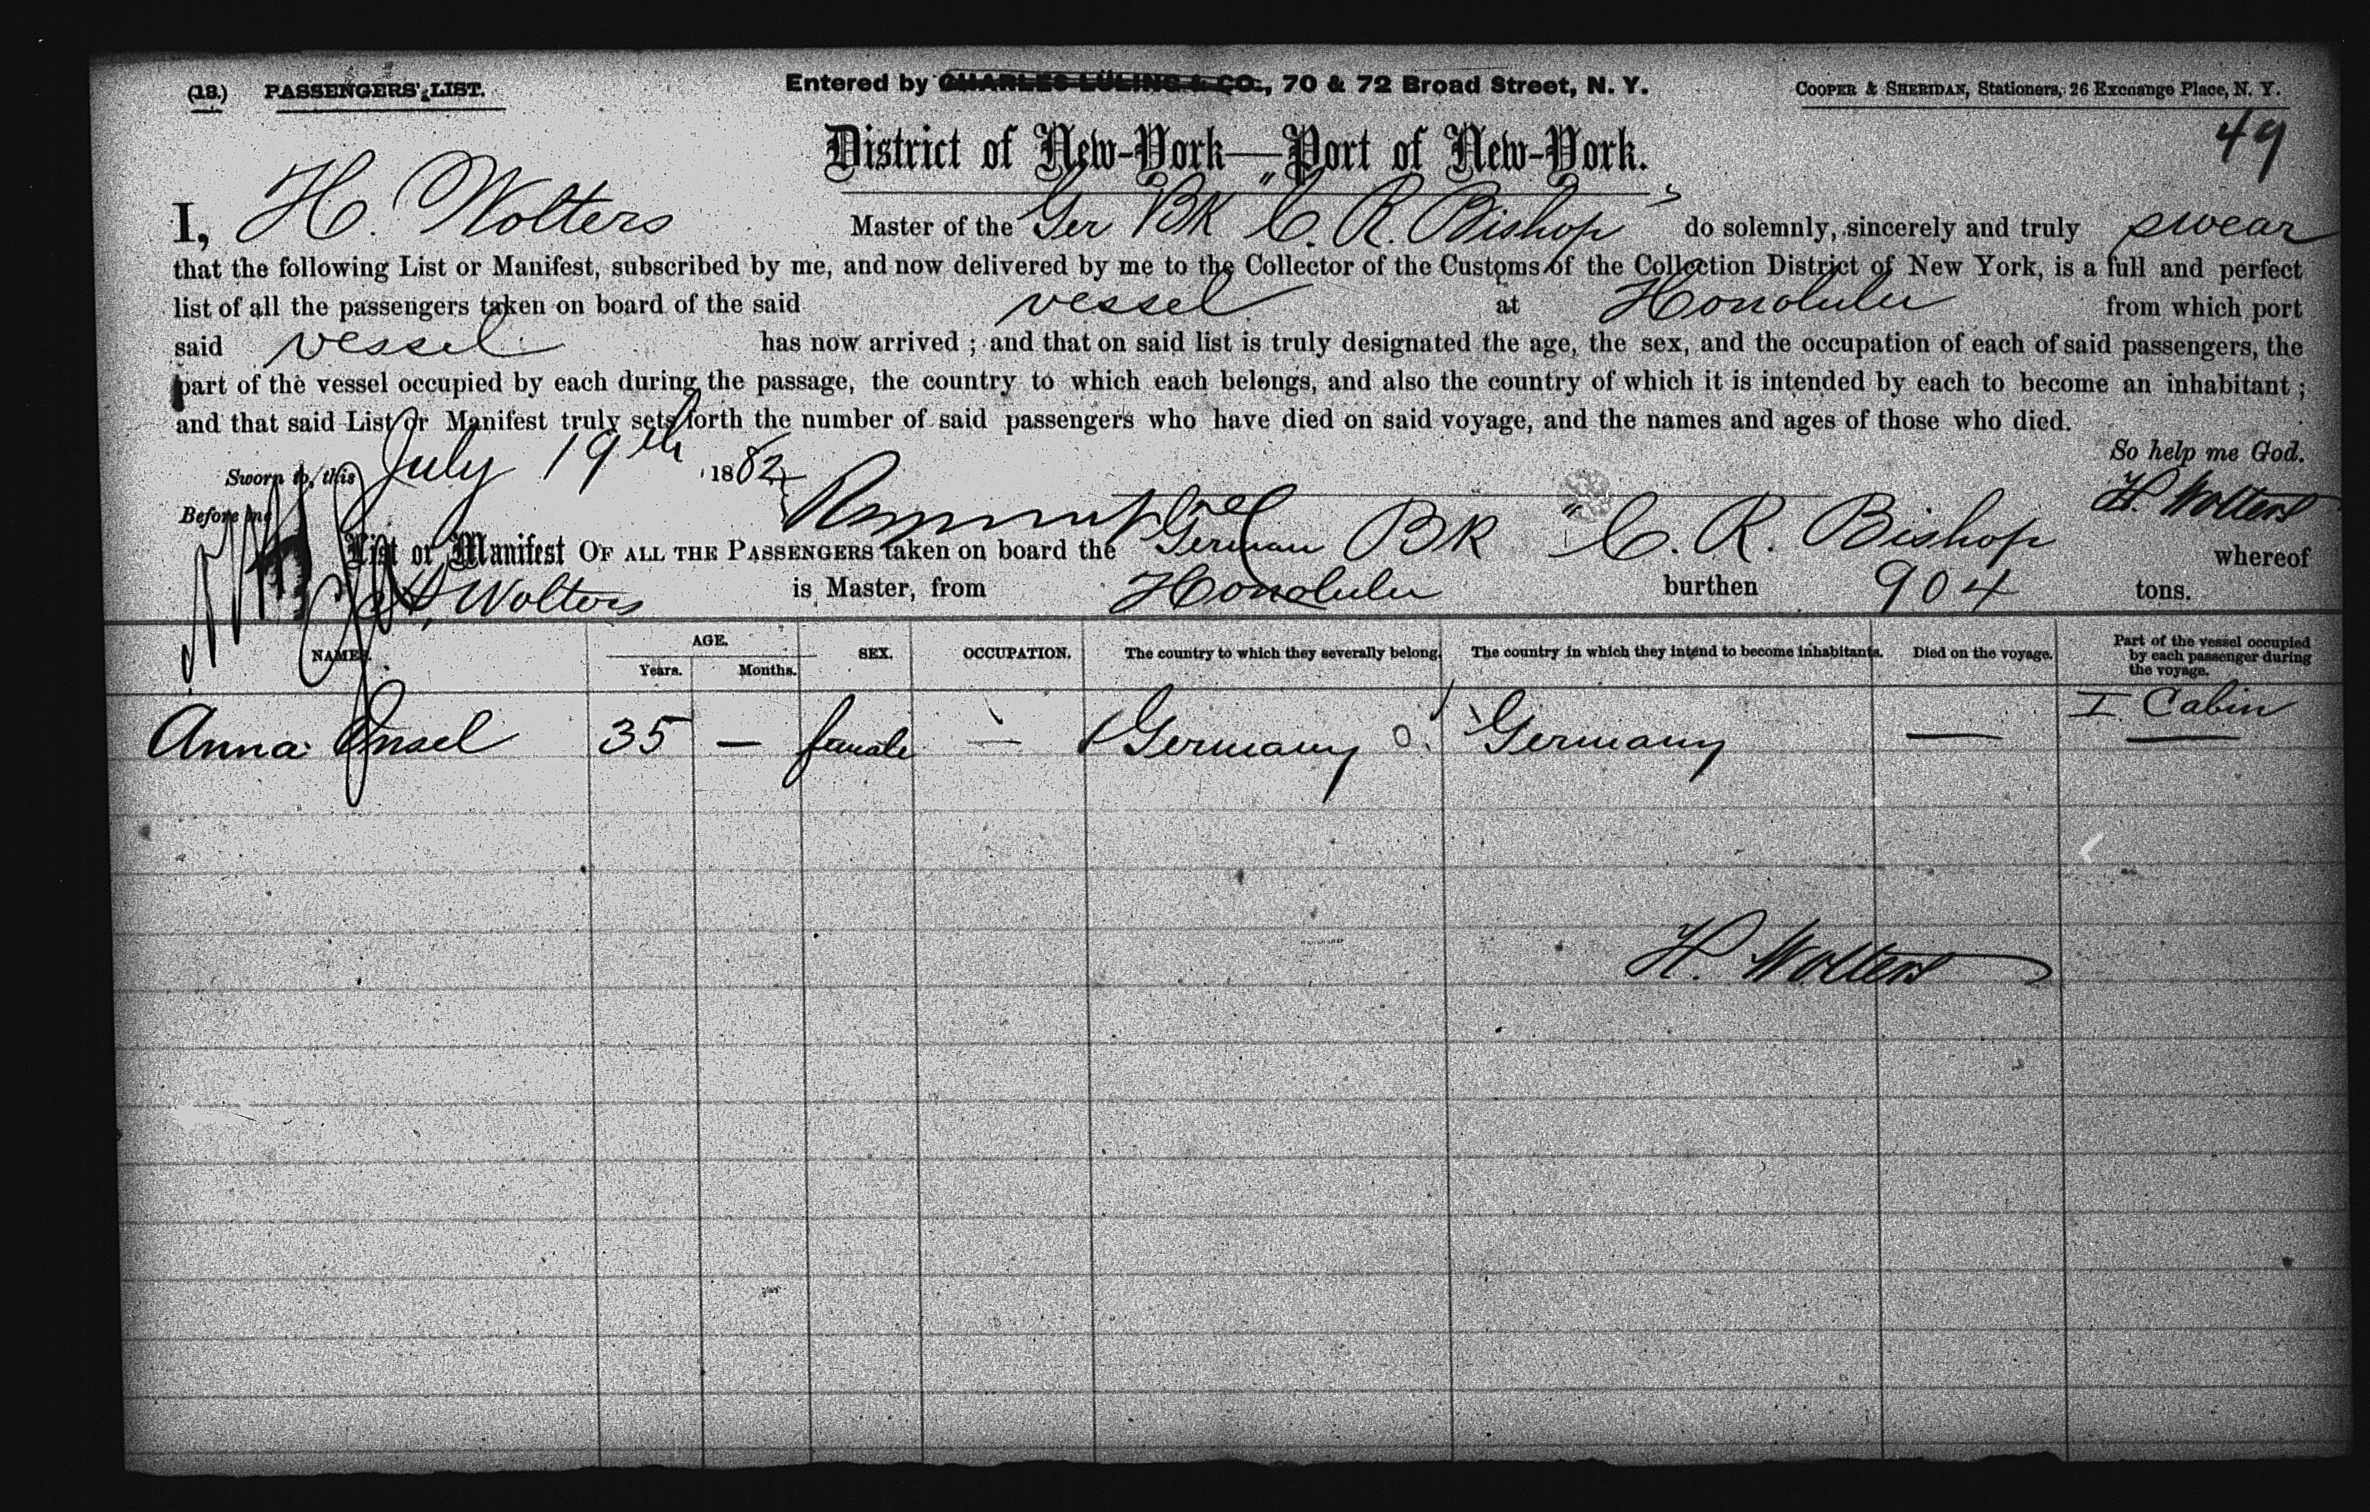 (18.) PASSENGERS' LIST. Entered by CHARLES LÜLING & CO., 70 & 72 Broad Street, N. Y. COOPER & SHERIDAN, Stationers, 26 Exchange Place, N. Y.
49
District of New-York—Port of New-York.
I, H. Wolters Master of the Ger BK "C. R. Bishop" do solemnly, sincerely and truly swear
that the following List or Manifest, subscribed by me, and now delivered by me to the Collector of the Customs of the Collection District of New York, is a full and perfect
list of all the passengers taken on board of the said vessel at Honolulu from which port
said vessel has now arrived ; and that on said list is truly designated the age, the sex, and the occupation of each of said passengers, the
part of the vessel occupied by each during the passage, the country to which each belongs, and also the country of which it is intended by each to become an inhabitant ;
and that said List or Manifest truly sets forth the number of said passengers who have died on said voyage, and the names and ages of those who died.
So help me God.
Sworn to, this July 19th 1882
H. Wolters
Before me
List or Manifest OF ALL THE PASSENGERS taken on board the German BK "C. R. Bishop whereof
H. Wolters is Master, from Honolulu burthen 904 tons.
NAMES. AGE. Years. Months. SEX. OCCUPATION. The country to which they severally belong. The country in which they intend to become inhabitants. Died on the voyage. Part of the vessel occupied by each passenger during the voyage.
Anna Insel 35 — female — Germany Germany — I Cabin
H. Wolters